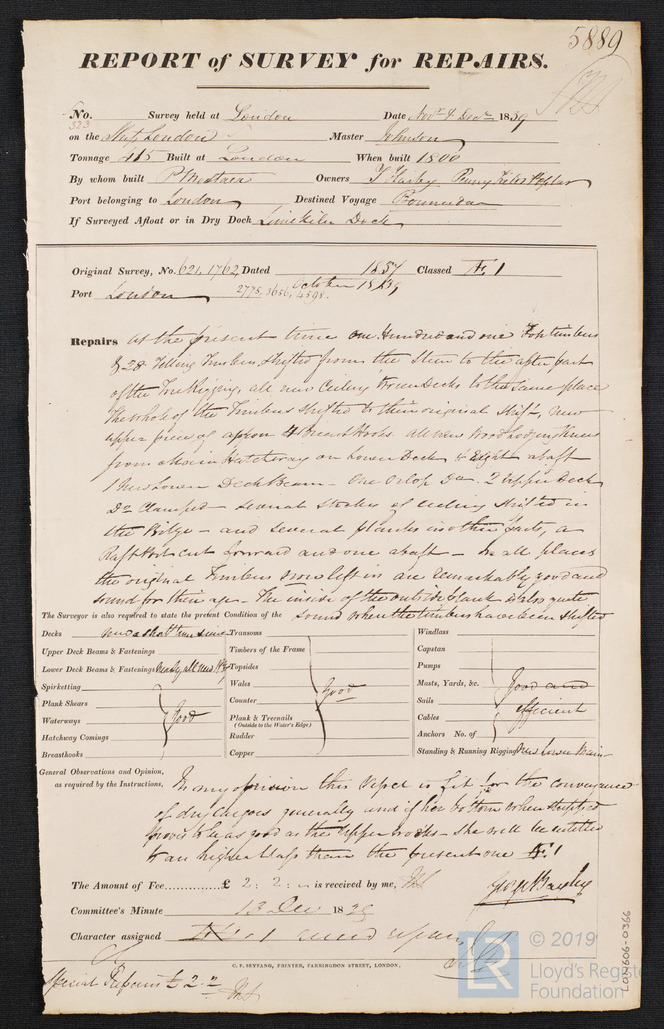 5889
REPORT of SURVEY for REPAIRS.
No. 323 Survey held at London Date Novr & Decr 1839
on the Ship London Master Johnson
Tonnage 415 Built at London When built 1800
By whom built Owners
Port belonging to London Destined Voyage
If Surveyed Afloat or in Dry Dock Limekiln Dock
Original Survey, No. 621, 1762 Dated 1837 Classed Æ 1
2775, 3656, 4598. October 1839
Port London
Repairs at the present time One Hundred and one Toptimbers
& 28 Filling Timbers shifted from the Stem to the after part
of the Fore Rigging, all new Ceiling Tween Decks to the same place
The whole of the Timbers shifted to their original shift, new
upper piece of apron 4 Breast Hooks. All new Wood Lodging Knees
from Main Hatchway on Lower Deck & Eight abaft
1 New Lower Deck Beam - One Orlop Do. 2 Upper Deck
Do Clamped - several strakes of ceiling shifted in
the Bilge - and several planks in other parts, a
Raft Port cut forward and one abaft - In all places
the original Timbers now left in are remarkably good and
sound for their age - The inside of the outside plank is also quite
sound when the timbers have been shifted
The Surveyor is also required to state the present Condition of the
Decks
Upper Deck Beams & Fastenings
Lower Deck Beams & Fastenings nearly all new
Spirketting
Plank Shears
Waterways
Hatchway Comings
Breasthooks
Good
Transoms
Timbers of the Frame
Topsides
Wales
Counter
Plank & Treenails
(Outside to the Water's Edge)
Rudder
Copper
Good
Windlass
Capstan
Pumps
Masts, Yards, &c.
Sails
Cables
Anchors No. of
Good and
efficient
Standing & Running Rigging New Lower Main
General Observations and Opinion,
as required by the Instructions,
In my opinion this Vessel is fit for the conveyance
of dry cargoes generally and if her bottom when stripped
proves to be as good as the upper works - She will be entitled
to an higher Class than the present one Æ 1
The Amount of Fee £ 2: 2: - is received by me,
Committee's Minute 13 Dec 1839
Character assigned
C. F. SEYFANG, PRINTER, FARRINGDON STREET, LONDON.
Special Repairs £ 2. 2
LR
© 2019
Lloyd's Register
Foundation
LON606-0366